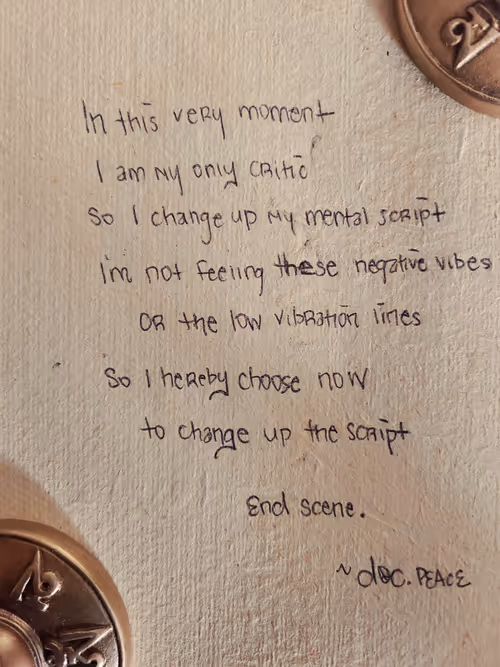 In this very moment
I am my only critic
So I change up my mental script
I'm not feeling these negative vibes
OR the low vibration lines
So I hereby choose now
to change up the script
End scene.
~ doc. PEACE